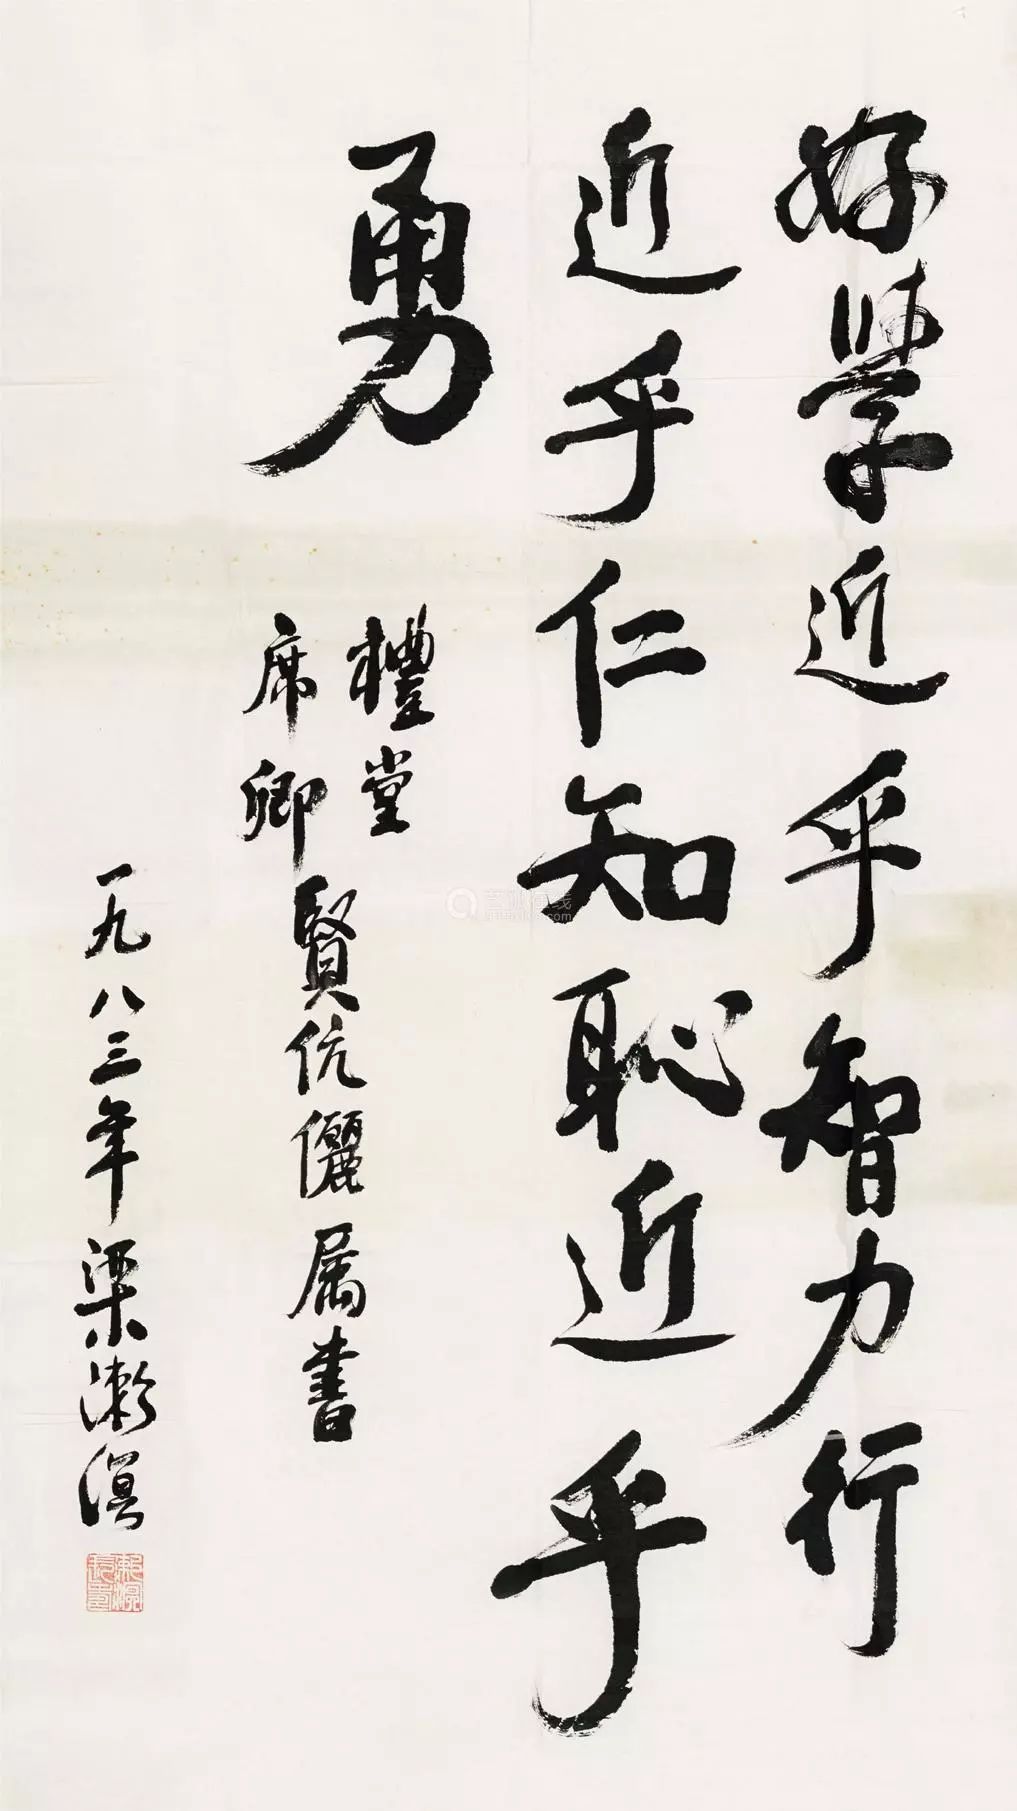 好學近乎智力行
近乎仁知恥近乎
勇
禮堂
席卿
賢伉儷属書
一九八三年梁漱溟